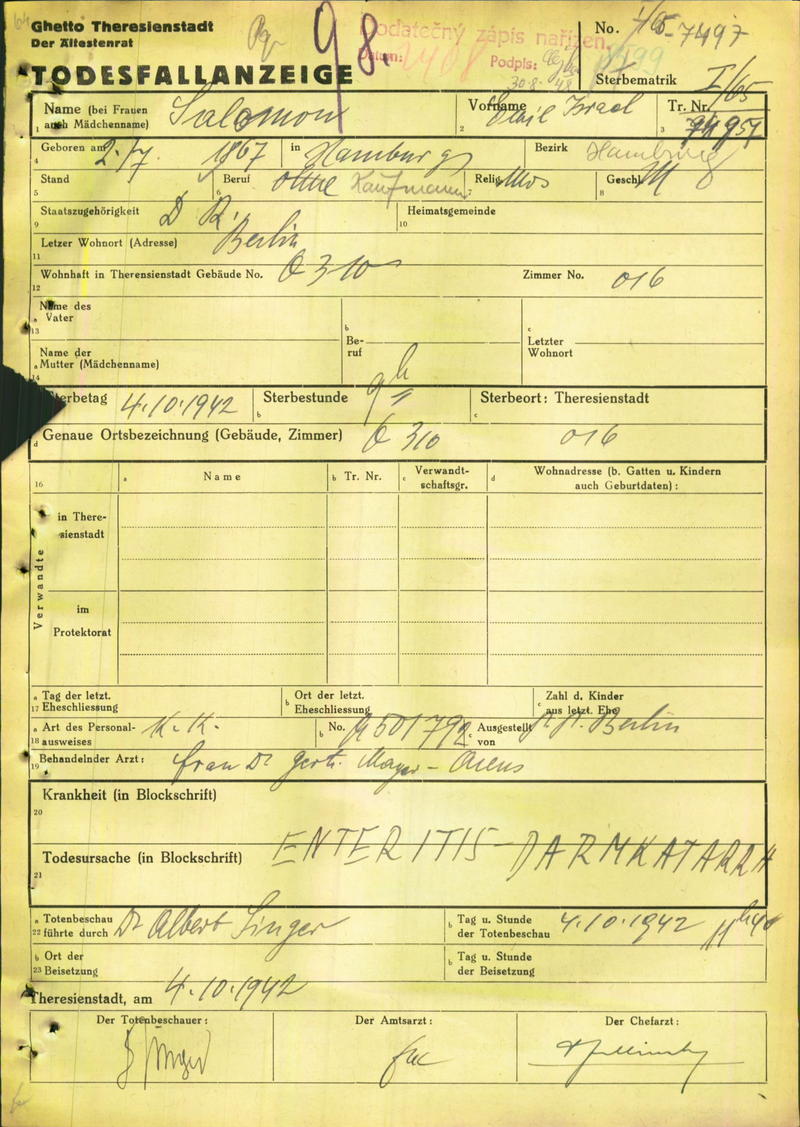 Ghetto Theresienstadt
Der Ältestenrat
TODESFALLANZEIGE
98.
Dodatečný zápis nařízen.
Datum:
Podpis:
30.8. 48
No. 7497
Sterbematrik I/65
Name (bei Frauen auch Mädchenname) Salomon
1
Vorname Emil Israel
2
Tr. Nr.
3
Geboren am 2./7. 1867 in Hamburg
4
Bezirk Hamburg
Stand
5
Beruf ohne Kaufmann
6
Relig. Mos
7
Geschl. M
8
Staatszugehörigkeit D. R.
9
Heimatsgemeinde
10
Letzer Wohnort (Adresse) Berlin
11
Wohnhaft in Theresienstadt Gebäude No. Q 310
12
Zimmer No. 016
a Name des Vater
13
b Beruf
c Letzter Wohnort
a Name der Mutter (Mädchenname)
14
Sterbetag 4.10.1942
b Sterbestunde 9h
c Sterbeort: Theresienstadt
d Genaue Ortsbezeichnung (Gebäude, Zimmer) Q 310 016
16
a Name
b Tr. Nr.
c Verwandtschaftsgr.
d Wohnadresse (b. Gatten u. Kindern auch Geburtdaten):
Verwandte
in Theresienstadt
im Protektorat
a Tag der letzt. Eheschliessung
17
b Ort der letzt. Eheschliessung
c Zahl d. Kinder aus letzt. Ehe
a Art des Personalausweises K.K.
18
b No. A 501792
c Ausgestellt von P. P. Berlin
Behandelnder Arzt: Frau Dr Gertr. Mayer-
19
Krankheit (in Blockschrift)
20
Todesursache (in Blockschrift) ENTERITIS-DARMKATARRH
21
a Totenbeschau führte durch Dr Albert Singer
22
b Tag u. Stunde der Totenbeschau 4.10.1942 11h40
b Ort der Beisetzung
23
b Tag u. Stunde der Beisetzung
Theresienstadt, am 4.10.1942
Der Totenbeschauer:
Der Amtsarzt:
Der Chefarzt: